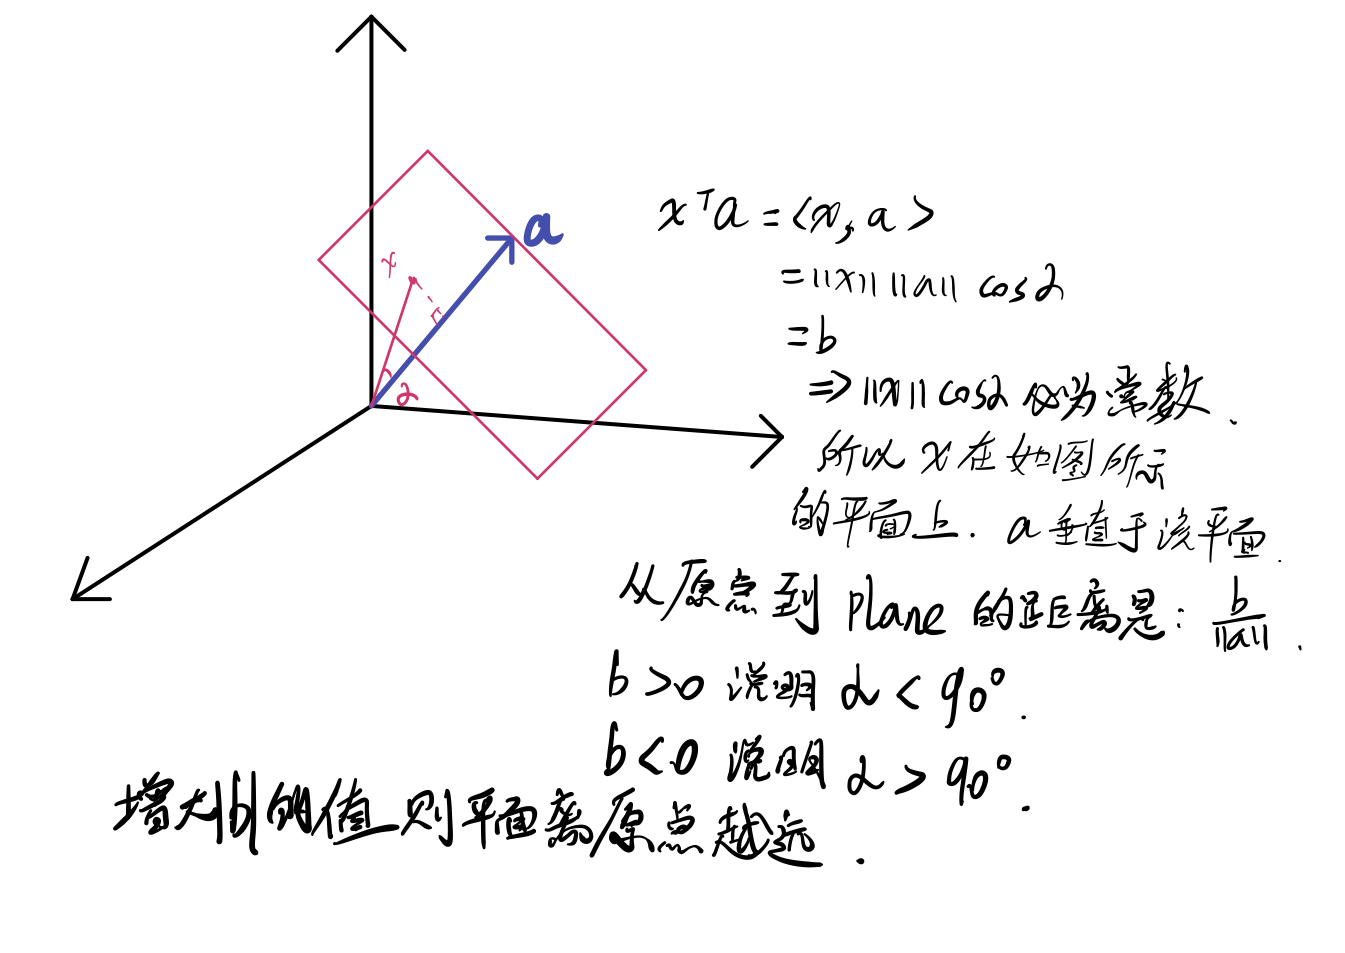 a
x
α
xᵀa = <x, a>
= ||x|| ||a|| cosα
= b
⇒ ||x|| cosα 必为常数.
所以 x 在如图所示
的平面上. a 垂直于该平面.
从原点到 plane 的距离是: b/||a||.
b > 0 说明 α < 90°.
b < 0 说明 α > 90°.
增大|b|的值则平面离原点越远.